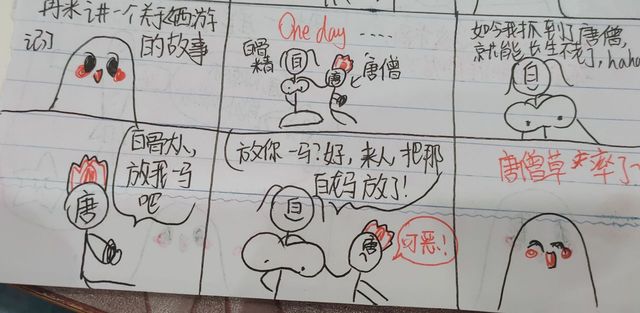 再来讲一个关于西游
记的故事
One day ......
白骨精
白
唐
唐僧
如今我抓到了唐僧,
就能长生不老了,haha
白
白骨大人,
放我一马
吧
唐
放你一马?好,来人把那
白龙马放了!
白
唐
可恶!
唐僧草率了~